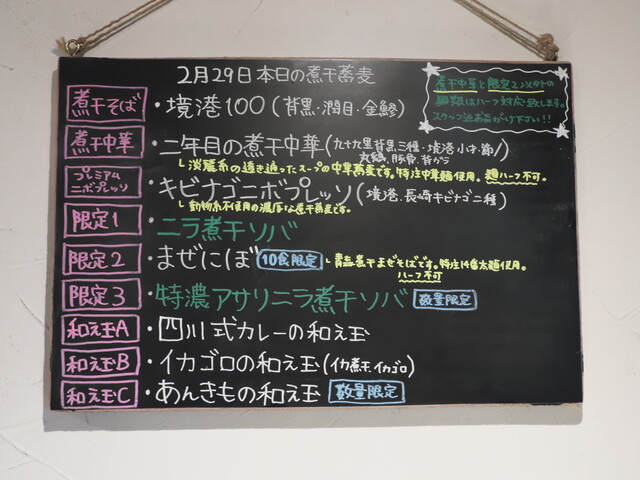 2月29日 本日の煮干蕎麦
煮干中華と限定2以外の
麺類はハーフ対応致します。
スタッフにお声がけ下さい!!
煮干そば ・境港100(背黒・潤目・金鯵)
煮干中華 ・二年目の煮干中華(九十九里背黒三種・境港小羽・節
丸鶏、豚骨、背ガラ)
淡麗系の透き通ったスープの中華蕎麦です。特注中華麺使用。麺ハーフ不可。
プレミアムニボプレッソ ・キビナゴニボプレッソ(境港、長崎キビナゴ二種)
動物系不使用の濃厚な煮干蕎麦です。
限定1 ・ニラ煮干ソバ
限定2 ・まぜにぼ 10食限定 青森煮干まぜそばです。特注14番太麺使用。
ハーフ不可
限定3 ・特濃アサリニラ煮干ソバ 数量限定
和え玉A ・四川式カレーの和え玉
和え玉B ・イカゴロの和え玉(イカ煮干、イカゴロ)
和え玉C ・あんきもの和え玉 数量限定